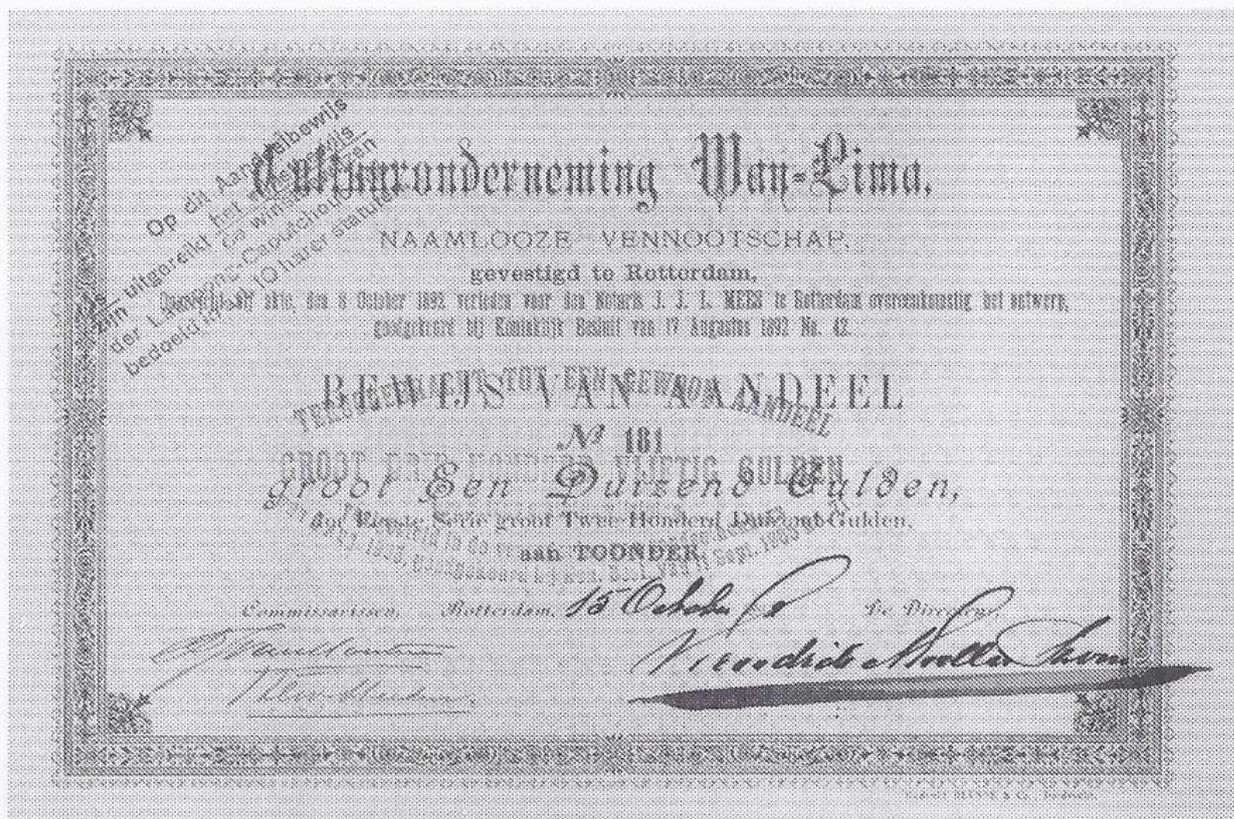 Op dit Aandeelbewijs
is uitgereikt het
zijn
de
der Lampong-Caoutchouc
bedoeld in 10 harer statuten
Cultuuronderneming Way-Lima,
NAAMLOOZE VENNOOTSCHAP,
gevestigd te Rotterdam,
Opgericht bij akte, den 8 October 1892 verleden voor den Notaris J. J. L. MEES te Rotterdam overeenkomstig het ontwerp,
goedgekeurd bij Koninklijk Besluit van 17 Augustus 1892 No. 42.
BEWIJS VAN AANDEEL
TERUGGEBRACHT TOT EEN GEWOON AANDEEL
No 181
GROOT DRIE HONDERD VIJFTIG GULDEN
groot Een Duizend Gulden,
der Eerste Serie groot Twee Honderd Duizend Gulden,
in de
goedgekeurd bij Kon. Besl. van 11 Sept.
aan TOONDER.
Commissarissen, Rotterdam, 15 October De Directeur